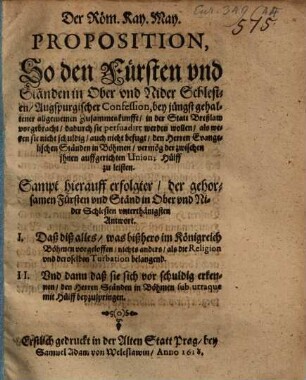 Der Röm. Kay. May.
PROPOSITION,
So den Fürsten vnd
Ständen in Ober vnd Nider Schlesi-
en / Augspurgischer Confession, bey jüngst gehal-
tener allgemeinen Zusammenkunfft / in der Statt Breßlaw
vorgebracht / dadurch sie persuadirt werden wollen / als we-
ren sie nicht schuldig / auch nicht befugt / den Herren Evange-
lischen Ständen in Böhmen / vermög der zwischen
jhnen auffgerichten Union; Hülff
zu leisten.
Sampt hierauff erfolgter / der gehor-
samen Fürsten vnd Ständ in Ober vnd Ni-
der Schlesien vnterthänigsten
Antwort.
I. Daß diß alles / was bißhero im Königreich
Böhmen vorgeloffen / nichts anders / als die Religion
vnd deroselben Turbation belangend.
II. Vnd dann daß sie sich vor schuldig erken-
nen / den Herren Ständen in Böhmen sub utraque
mit Hülff beyzuspringen.
Erstlich gedruckt in der Alten Statt Prag / bey
Samuel Adam von Weleslawin / Anno 1618.